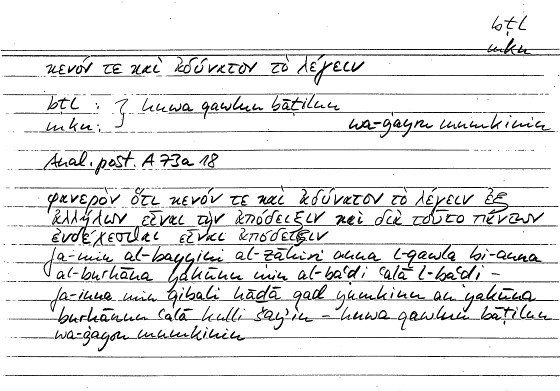 bṭl
mkn
κενόν τε καὶ ἀδύνατον τὸ λέγειν
bṭl : } huwa qawlun bāṭilun
mkn: wa-ġayru mumkinin
Anal. post. A 73a 18
φανερὸν ὅτι κενόν τε καὶ ἀδύνατον τὸ λέγειν ἐξ
ἀλλήλων εἶναι τὴν ἀπόδειξιν καὶ διὰ τοῦτο πάντων
ἐνδέχεσθαι εἶναι ἀπόδειξιν
fa-min al-bayyini al-ẓāhiri anna l-qawla bi-anna
al-burhāna yakūnu min al-baʿdi ʿalā l-baʿdi –
fa-inna min qibali hāḏā qad yumkinu an yakūna
burhānun ʿalā kulli šayʾin – huwa qawlun bāṭilun
wa-ġayru mumkinin